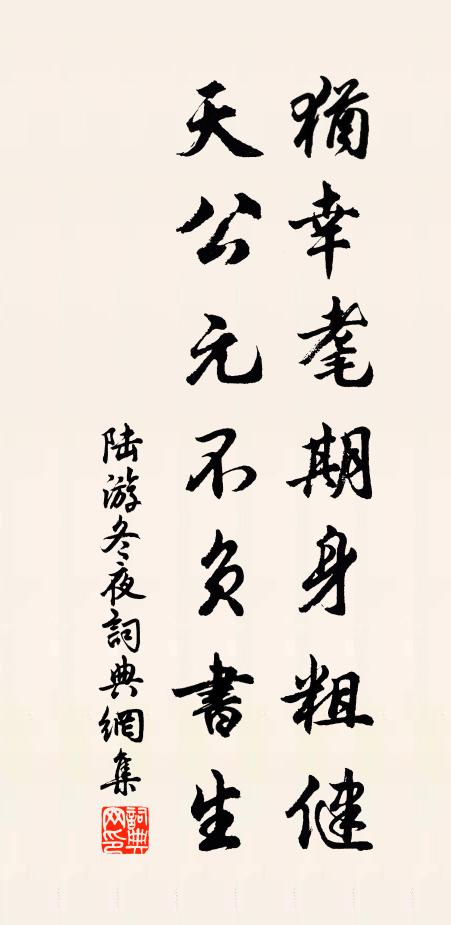 猶幸耄期身粗健
天公元不負書生
陸游冬夜詞典網集
詞典
网印